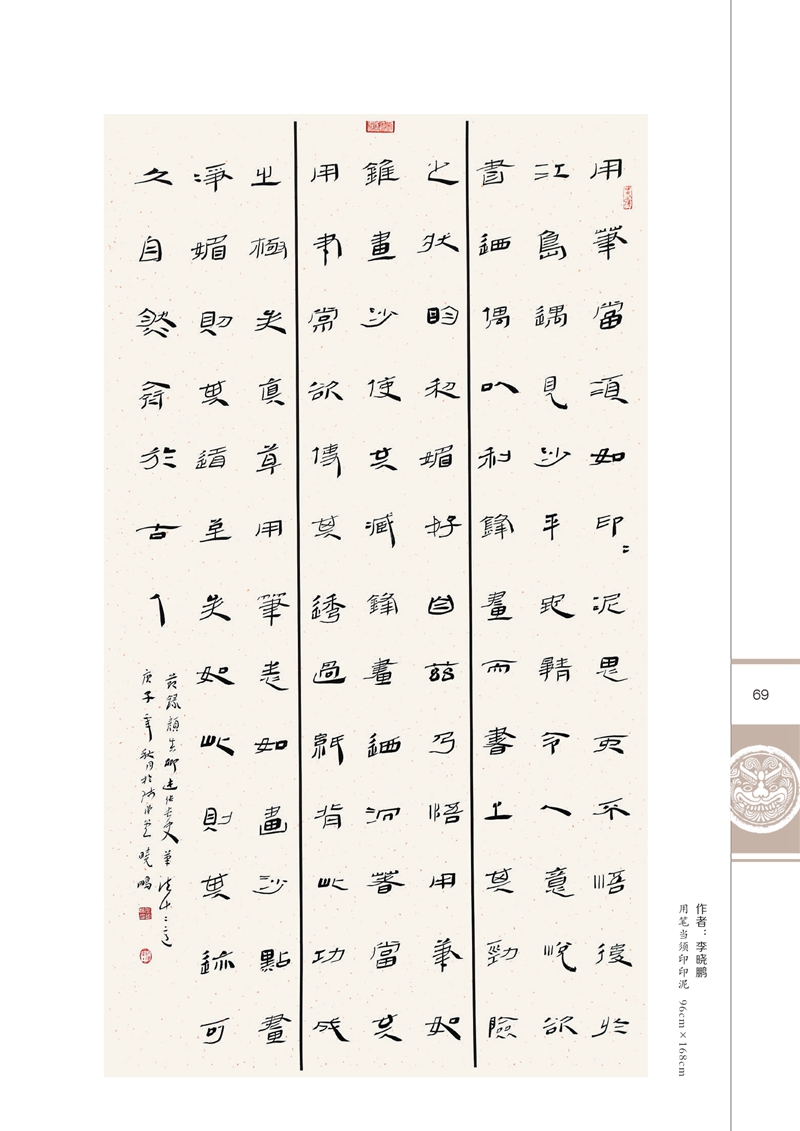 用筆當須如印〻泥思而不悟後於
江島遇見沙平地靜令人意悅欲
書迺偶以利鋒畫而書之其勁險
之狀明利媚好自茲乃悟用筆如
錐畫沙使其藏鋒畫迺沉著當其
用筆常欲傳其透過紙背此功成
之極矣真草用筆悉如畫沙點畫
淨媚則其道至矣如此則其跡可
久自然齊於古人
節錄顏真卿述張長史筆法十二意
庚子年秋月於 曉鵬
作者：李晓鹏
用笔当须印印泥 96cm×168cm
69